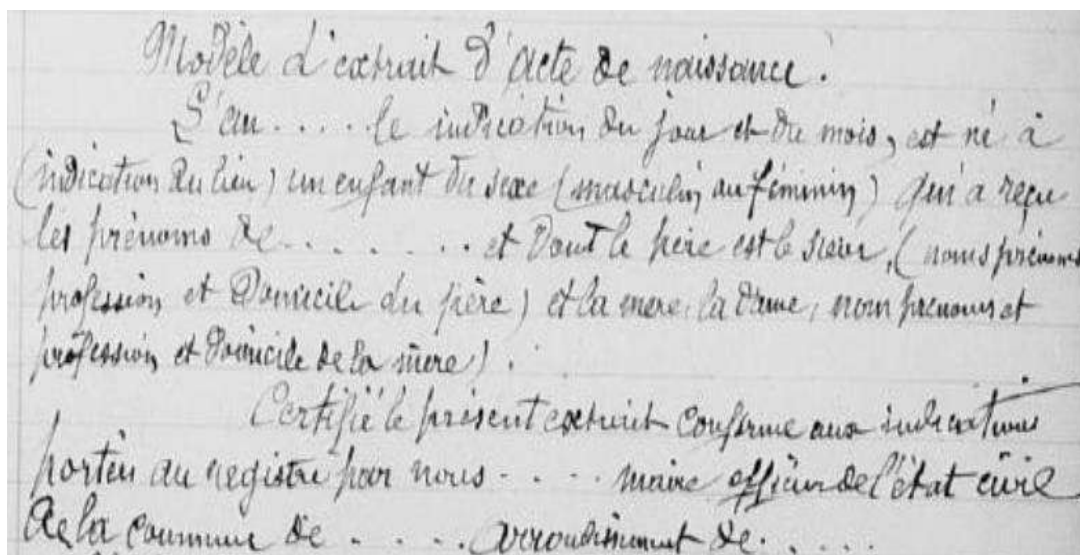 Modèle d'extrait d'acte de naissance.
L'an . . . . le indication du jour et du mois, est né à
(indication du lieu) un enfant du sexe (masculin au féminin) qui a reçu
les prénoms de . . . . . . . et dont le père est le sieur, (noms prénoms
profession et Domicile du père) et la mere, la dame, nom prenoms et
profession et domicile de la mère).
Certifié le présent extrait conforme aux indications
portées au registre par nous . . . . . maire officier de l'état civil
de la commune de . . . . . arrondissement de . . . . .